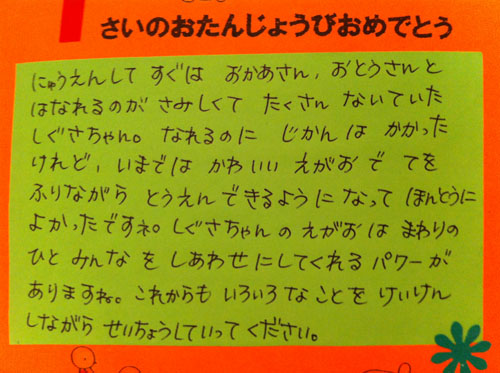 さいのおたんじょうびおめでとう
にゅうえんして すぐは おかあさん, おとうさんと
はなれるのが さみしくて たくさん ないていた
しぐさちゃん。なれるのに じかん は かかった
けれど, いまでは かわいい えがお で てを
ふりながら とうえん できるように なって ほんとうに
よかったですネ。しぐさちゃん の えがお は まわりの
ひと みんな を しあわせ にしてくれる パワーが
ありますね。これからも いろいろ な ことを けいけん
しながら せいちょうしていって ください。